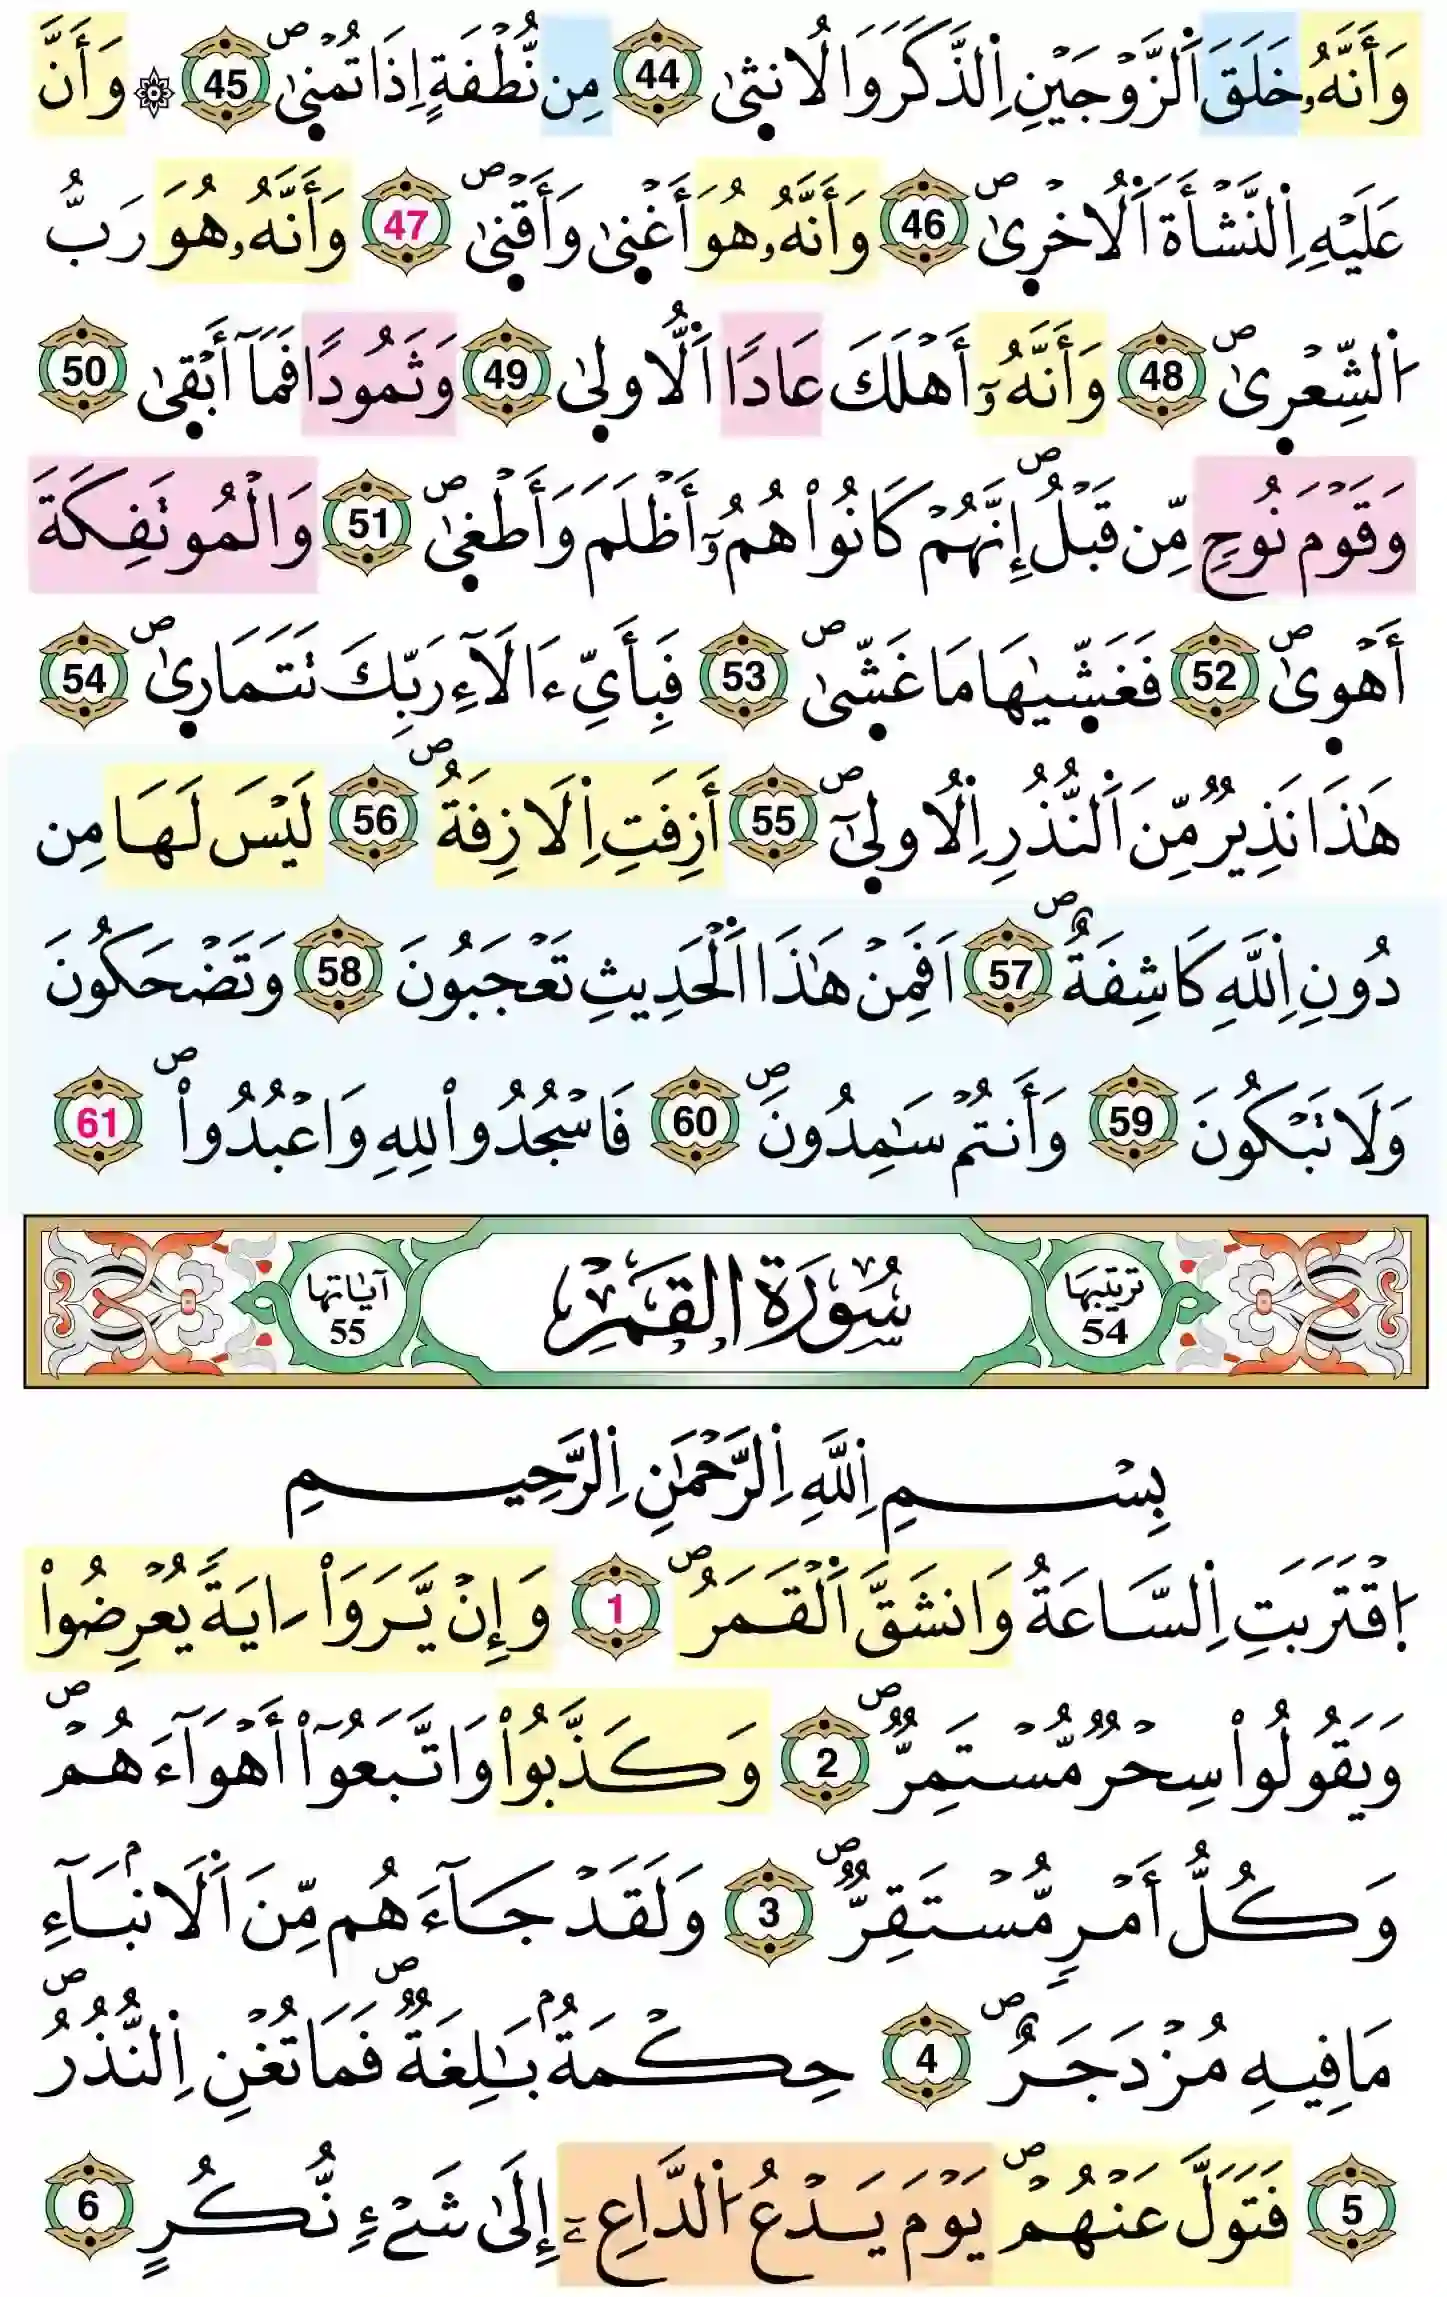 وَأَنَّهُۥ خَلَقَ اَ۬لزَّوْجَيْنِ اِ۬لذَّكَرَ وَالُانث۪ىٰ 44 مِن نُّطْفَةٍ اِذَا تُمْن۪ىٰۖ 45 ۞ وَأَنَّ
عَلَيْهِ اِ۬لنَّشْأَةَ اَ۬لُاخْر۪ىٰۖ 46 وَأَنَّهُۥ هُوَ أَغْن۪ىٰ وَأَقْن۪ىٰۖ 47 وَأَنَّهُۥ هُوَ رَبُّ
اُ۬لشِّعْر۪ىٰۖ 48 وَأَنَّهُۥٓ أَهْلَكَ عَاداً اَ۬لُّاول۪ىٰ 49 وَثَمُوداً فَمَآ أَبْق۪ىٰ 50
وَقَوْمَ نُوحٍ مِّن قَبْلُۖ إِنَّهُمْ كَانُواْ هُمُۥٓ أَظْلَمَ وَأَطْغ۪ىٰۖ 51 وَالْمُوتَفِكَةَ
أَهْو۪ىٰۖ 52 فَغَشّ۪يٰهَا مَا غَشّ۪ىٰۖ 53 فَبِأَيِّ ءَالَآءِ رَبِّكَ تَتَمَار۪ىٰۖ 54
هَٰذَا نَذِيرٌ مِّنَ اَ۬لنُّذُرِ اِ۬لُاول۪ىٰٓۖ 55 أَزِفَتِ اِ۬لَازِفَةُۖ 56 لَيْسَ لَهَا مِن
دُونِ اِ۬للَّهِ كَاشِفَةٌۖ 57 اَفَمِنْ هَٰذَا اَ۬لْحَدِيثِ تَعْجَبُونَ 58 وَتَضْحَكُونَ
وَلَا تَبْكُونَ 59 وَأَنتُمْ سَٰمِدُونَۖ 60 فَاسْجُدُواْ لِلهِ وَاعْبُدُواْۖ 61
ترتيبها 54 سُورَةُ القَمَرِ آيَاتها 55
بِسْمِ اِ۬للَّهِ اِ۬لرَّحْمَٰنِ اِ۬لرَّحِيمِ
اِ۪قْتَرَبَتِ اِ۬لسَّاعَةُ وَانشَقَّ اَ۬لْقَمَرُۖ 1 وَإِنْ يَّرَوَاْ ايَةً يُعْرِضُواْ
وَيَقُولُواْ سِحْرٌ مُّسْتَمِرٌّۖ 2 وَكَذَّبُواْ وَاتَّبَعُوٓاْ أَهْوَآءَهُمْۖ
وَكُلُّ أَمْرٍ مُّسْتَقِرٌّۖ 3 وَلَقَدْ جَآءَهُم مِّنَ اَ۬لَانۢبَآءِ
مَا فِيهِ مُزْدَجَرٌۖ 4 حِكْمَةُۢ بَٰلِغَةٌۖ فَمَا تُغْنِ اِ۬لنُّذُرُۖ
5 فَتَوَلَّ عَنْهُمْۖ يَوْمَ يَدْعُ اُ۬لدَّاعِۦٓ إِلَىٰ شَےْءٍ نُّكُرٍ 6